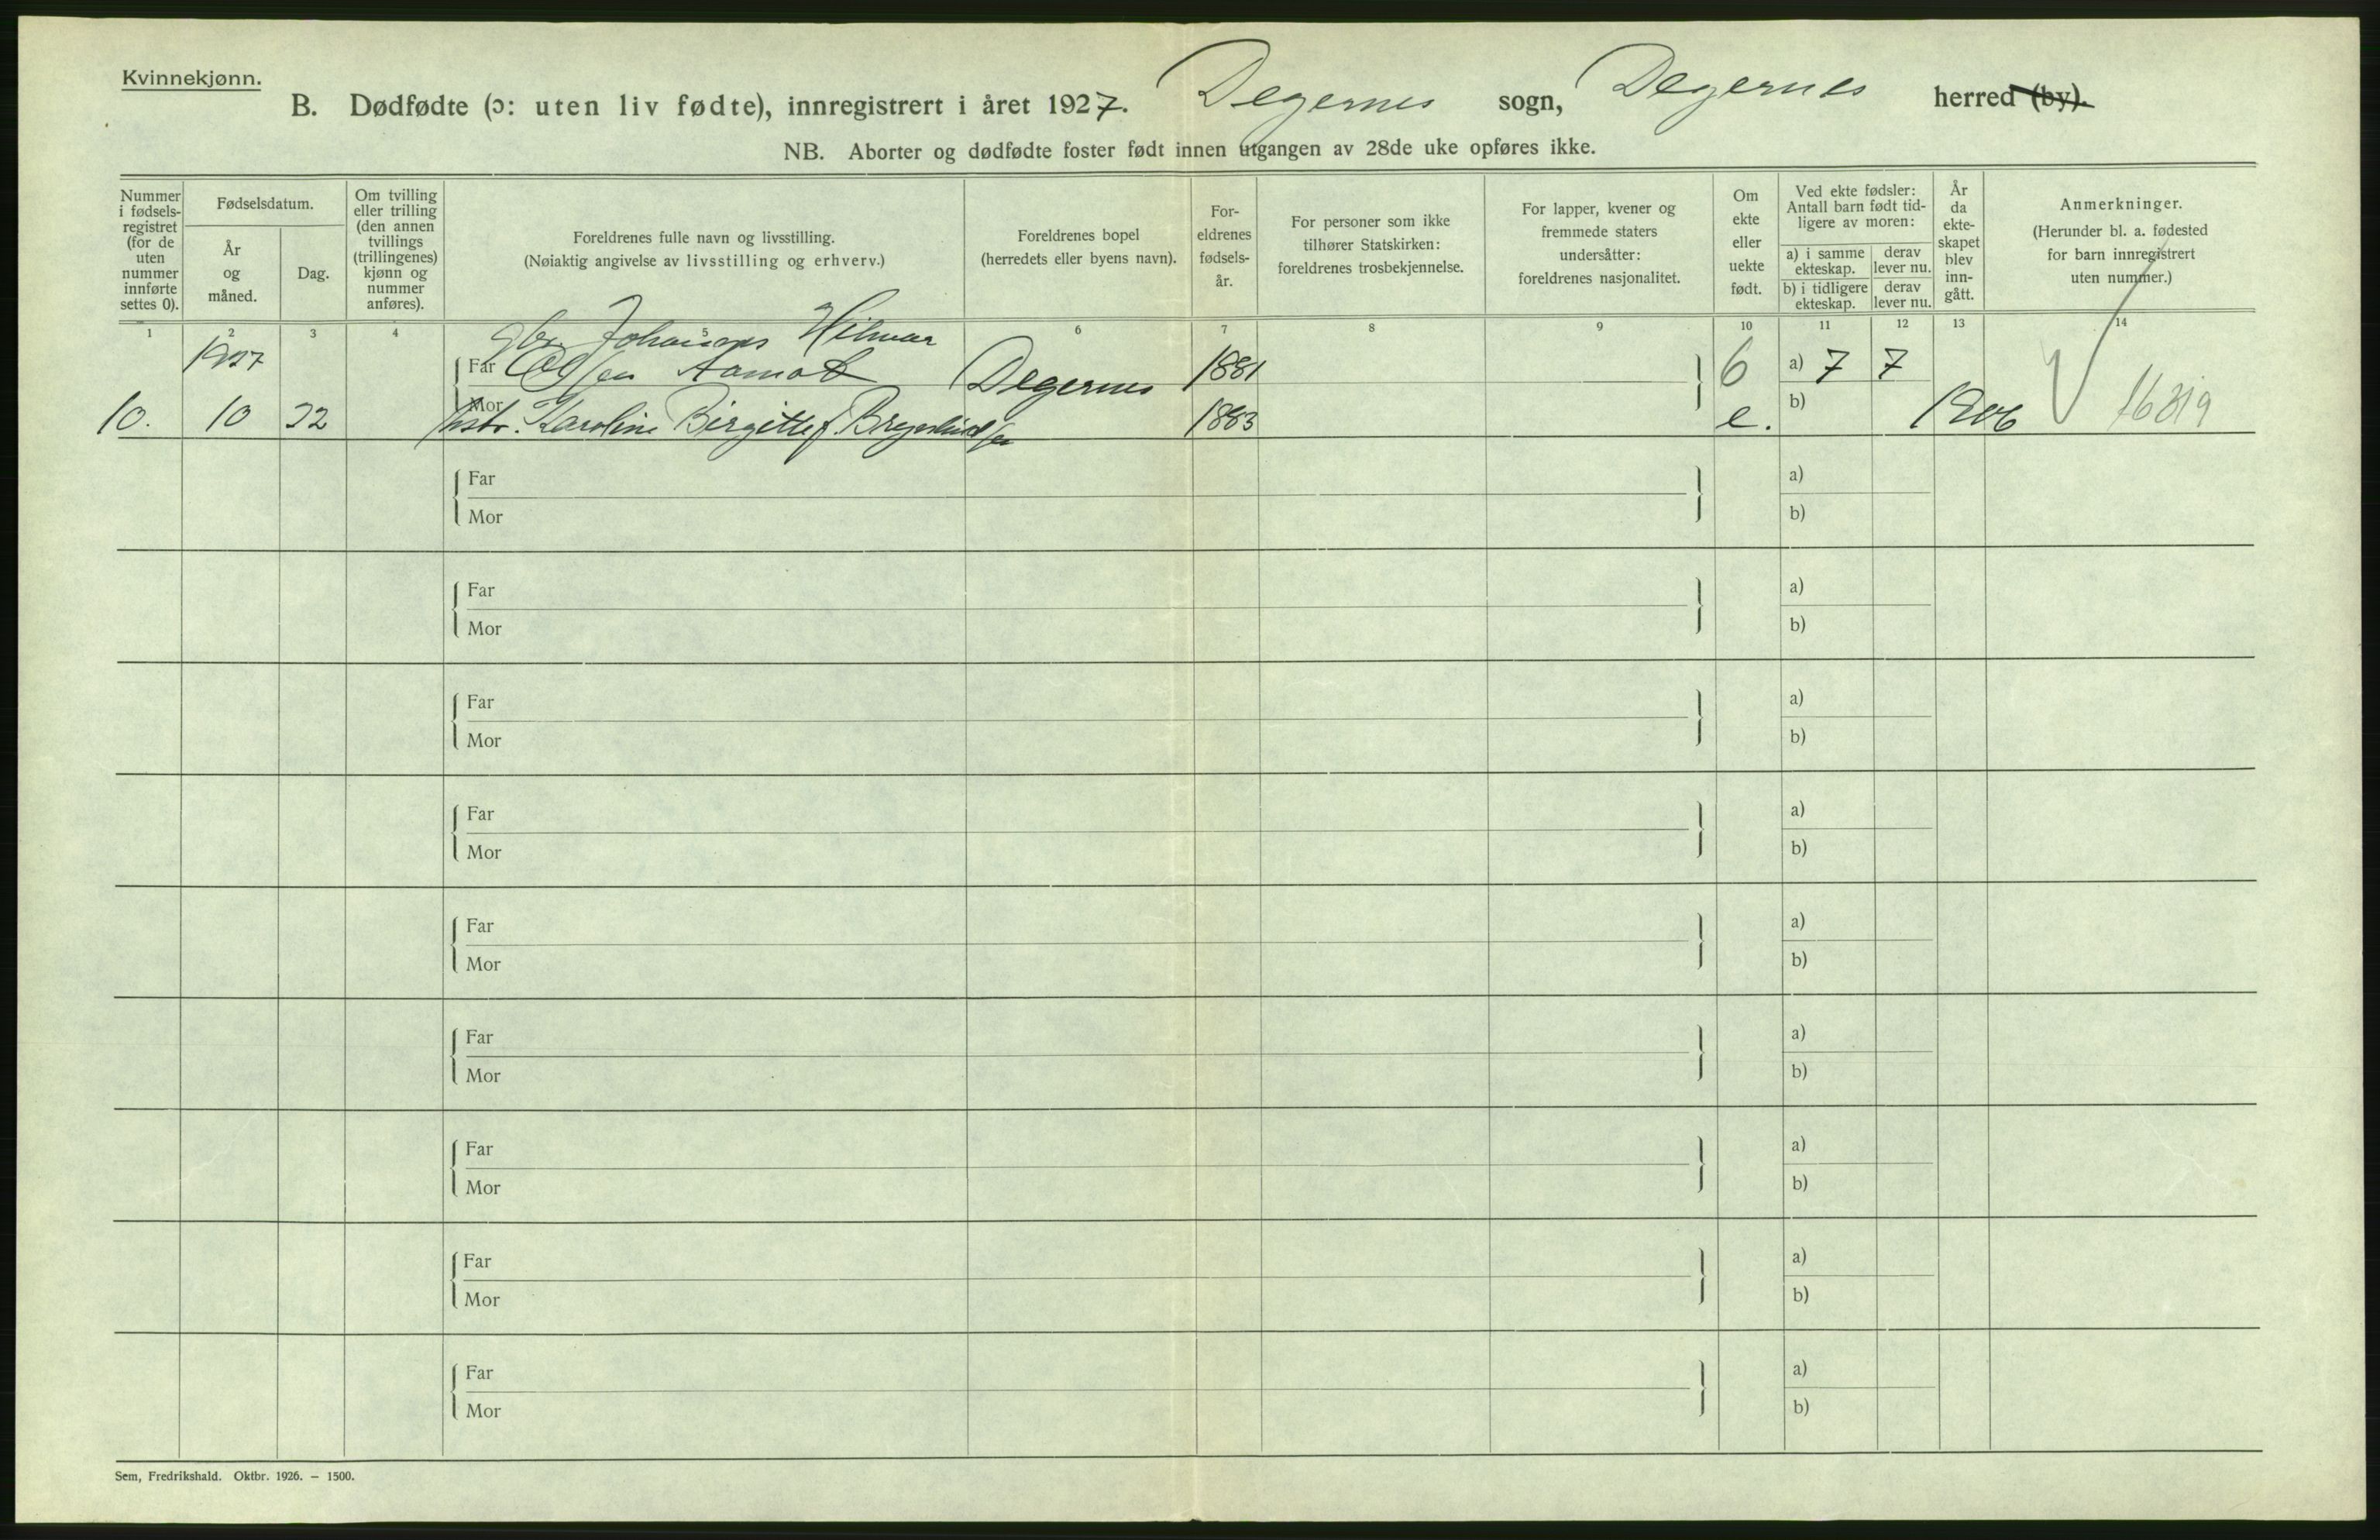 Kvinnekjønn.
B. Dødfødte (ɔ: uten liv fødte), innregistrert i året 1927. Degernes sogn, Degernes herred (by).
NB. Aborter og dødfødte foster født innen utgangen av 28de uke opføres ikke.
Nummer
i fødsels-
registret
(for de
uten
nummer
innførte
settes 0).
Fødselsdatum.
År
og
måned.
Dag.
Om tvilling
eller trilling
(den annen
tvillings
(trillingenes)
kjønn og
nummer
anføres).
Foreldrenes fulle navn og livsstilling.
(Nøiaktig angivelse av livsstilling og erhverv.)
Foreldrenes bopel
(herredets eller byens navn).
For-
eldrenes
fødsels-
år.
For personer som ikke
tilhører Statskirken:
foreldrenes trosbekjennelse.
For lapper, kvener og
fremmede staters
undersåtter:
foreldrenes nasjonalitet.
Om
ekte
eller
uekte
født.
Ved ekte fødsler:
Antall barn født tid-
ligere av moren:
a) i samme
ekteskap.
derav
lever nu.
b) i tidligere
ekteskap.
derav
lever nu.
År
da
ekte-
skapet
blev
inn-
gått.
Anmerkninger.
(Herunder bl. a. fødested
for barn innregistrert
uten nummer.)
1 2 3 4 5 6 7 8 9 10 11 12 13 14
Gbr. Johannes Hilmar
1927 Far Olsen Aamot Degernes 1881 6 a) 7 7
10. 10 22 Mor Hstr. Karoline Birgitte f. 1883 e. b) 1906 16319
Far a)
Mor b)
Far a)
Mor b)
Far a)
Mor b)
Far a)
Mor b)
Far a)
Mor b)
Far a)
Mor b)
Far a)
Mor b)
Far a)
Mor b)
Far a)
Mor b)
Sem, Fredrikshald. Oktbr. 1926. — 1500.